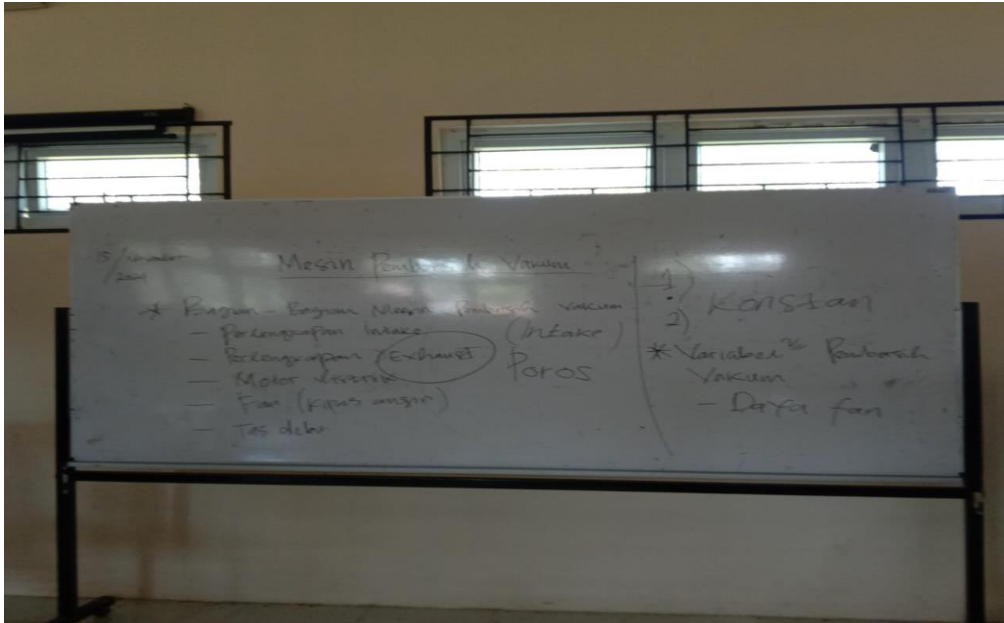 15/November
2021
Mesin Pembersih Vakum
* Bagian-Bagian Mesin Pembersih Vakum
- Perlengkapan Intake (Intake)
- Perlengkapan (Exhaust) Poros
- Motor Listrik
- Fan (Kipas angin)
- Tas debu
1)
2) Konstan
* Variabel² Pembersih
Vakum
- Daya fan